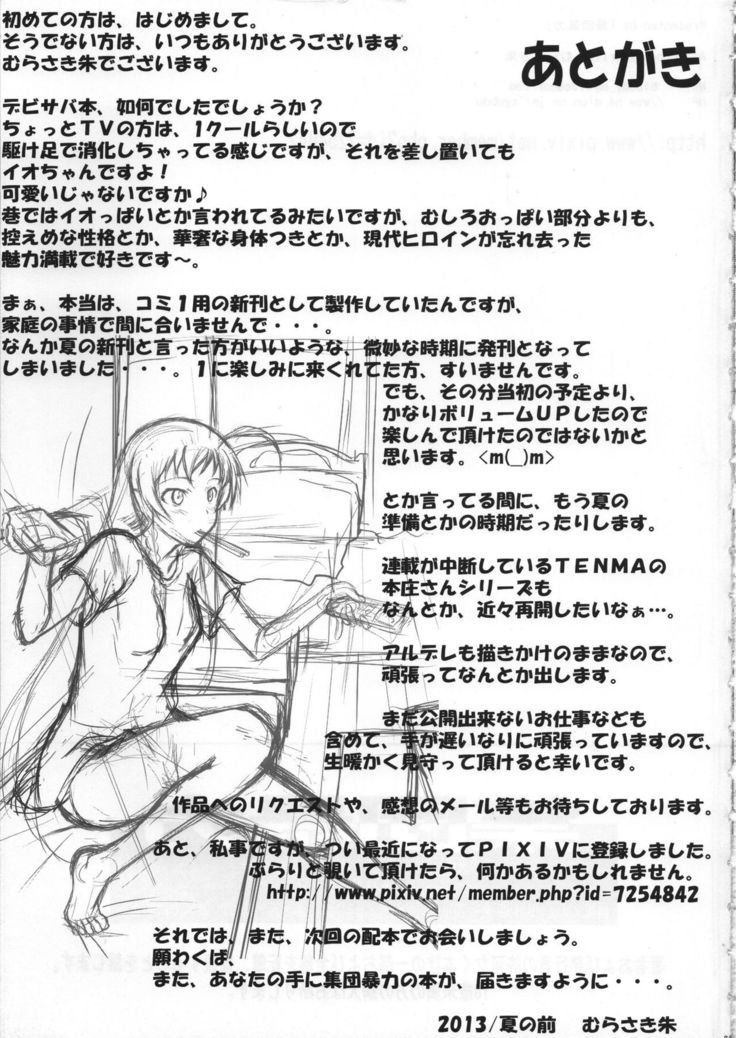 あとがき
初めての方は、はじめまして。
そうでない方は、いつもありがとうございます。
むらさき朱でございます。
デビサバ本、如何でしたでしょうか？
ちょっとＴＶの方は、１クールらしいので
駆け足で消化しちゃってる感じですが、それを差し置いても
イオちゃんですよ！
可愛いじゃないですか♪
巷ではイオっぱいとか言われてるみたいですが、むしろおっぱい部分よりも、
控えめな性格とか、華奢な身体つきとか、現代ヒロインが忘れ去った
魅力満載で好きです～。
まぁ、本当は、コミ１用の新刊として製作していたんですが、
家庭の事情で間に合いませんで・・・。
なんか夏の新刊と言った方がいいような、微妙な時期に発刊となって
しまいました・・・。１に楽しみに来くれてた方、すいませんです。
でも、その分当初の予定より、
かなりボリュームＵＰしたので
楽しんで頂けたのではないかと
思います。<m(__)m>
とか言ってる間に、もう夏の
準備とかの時期だったりします。
連載が中断しているＴＥＮＭＡの
本庄さんシリーズも
なんとか、近々再開したいなぁ…。
アルデレも描きかけのままなので、
頑張ってなんとか出します。
まだ公開出来ないお仕事なども
含めて、手が遅いなりに頑張っていますので、
生暖かく見守って頂けると幸いです。
作品へのリクエストや、感想のメール等もお待ちしております。
あと、私事ですが、つい最近になってＰＩＸＩＶに登録しました。
ぶらりと覗いて頂けたら、何かあるかもしれません。
http://www.pixiv.net/member.php?id=7254842
それでは、また、次回の配本でお会いしましょう。
願わくば、
また、あなたの手に集団暴力の本が、届きますように・・・。
2013/夏の前　むらさき朱